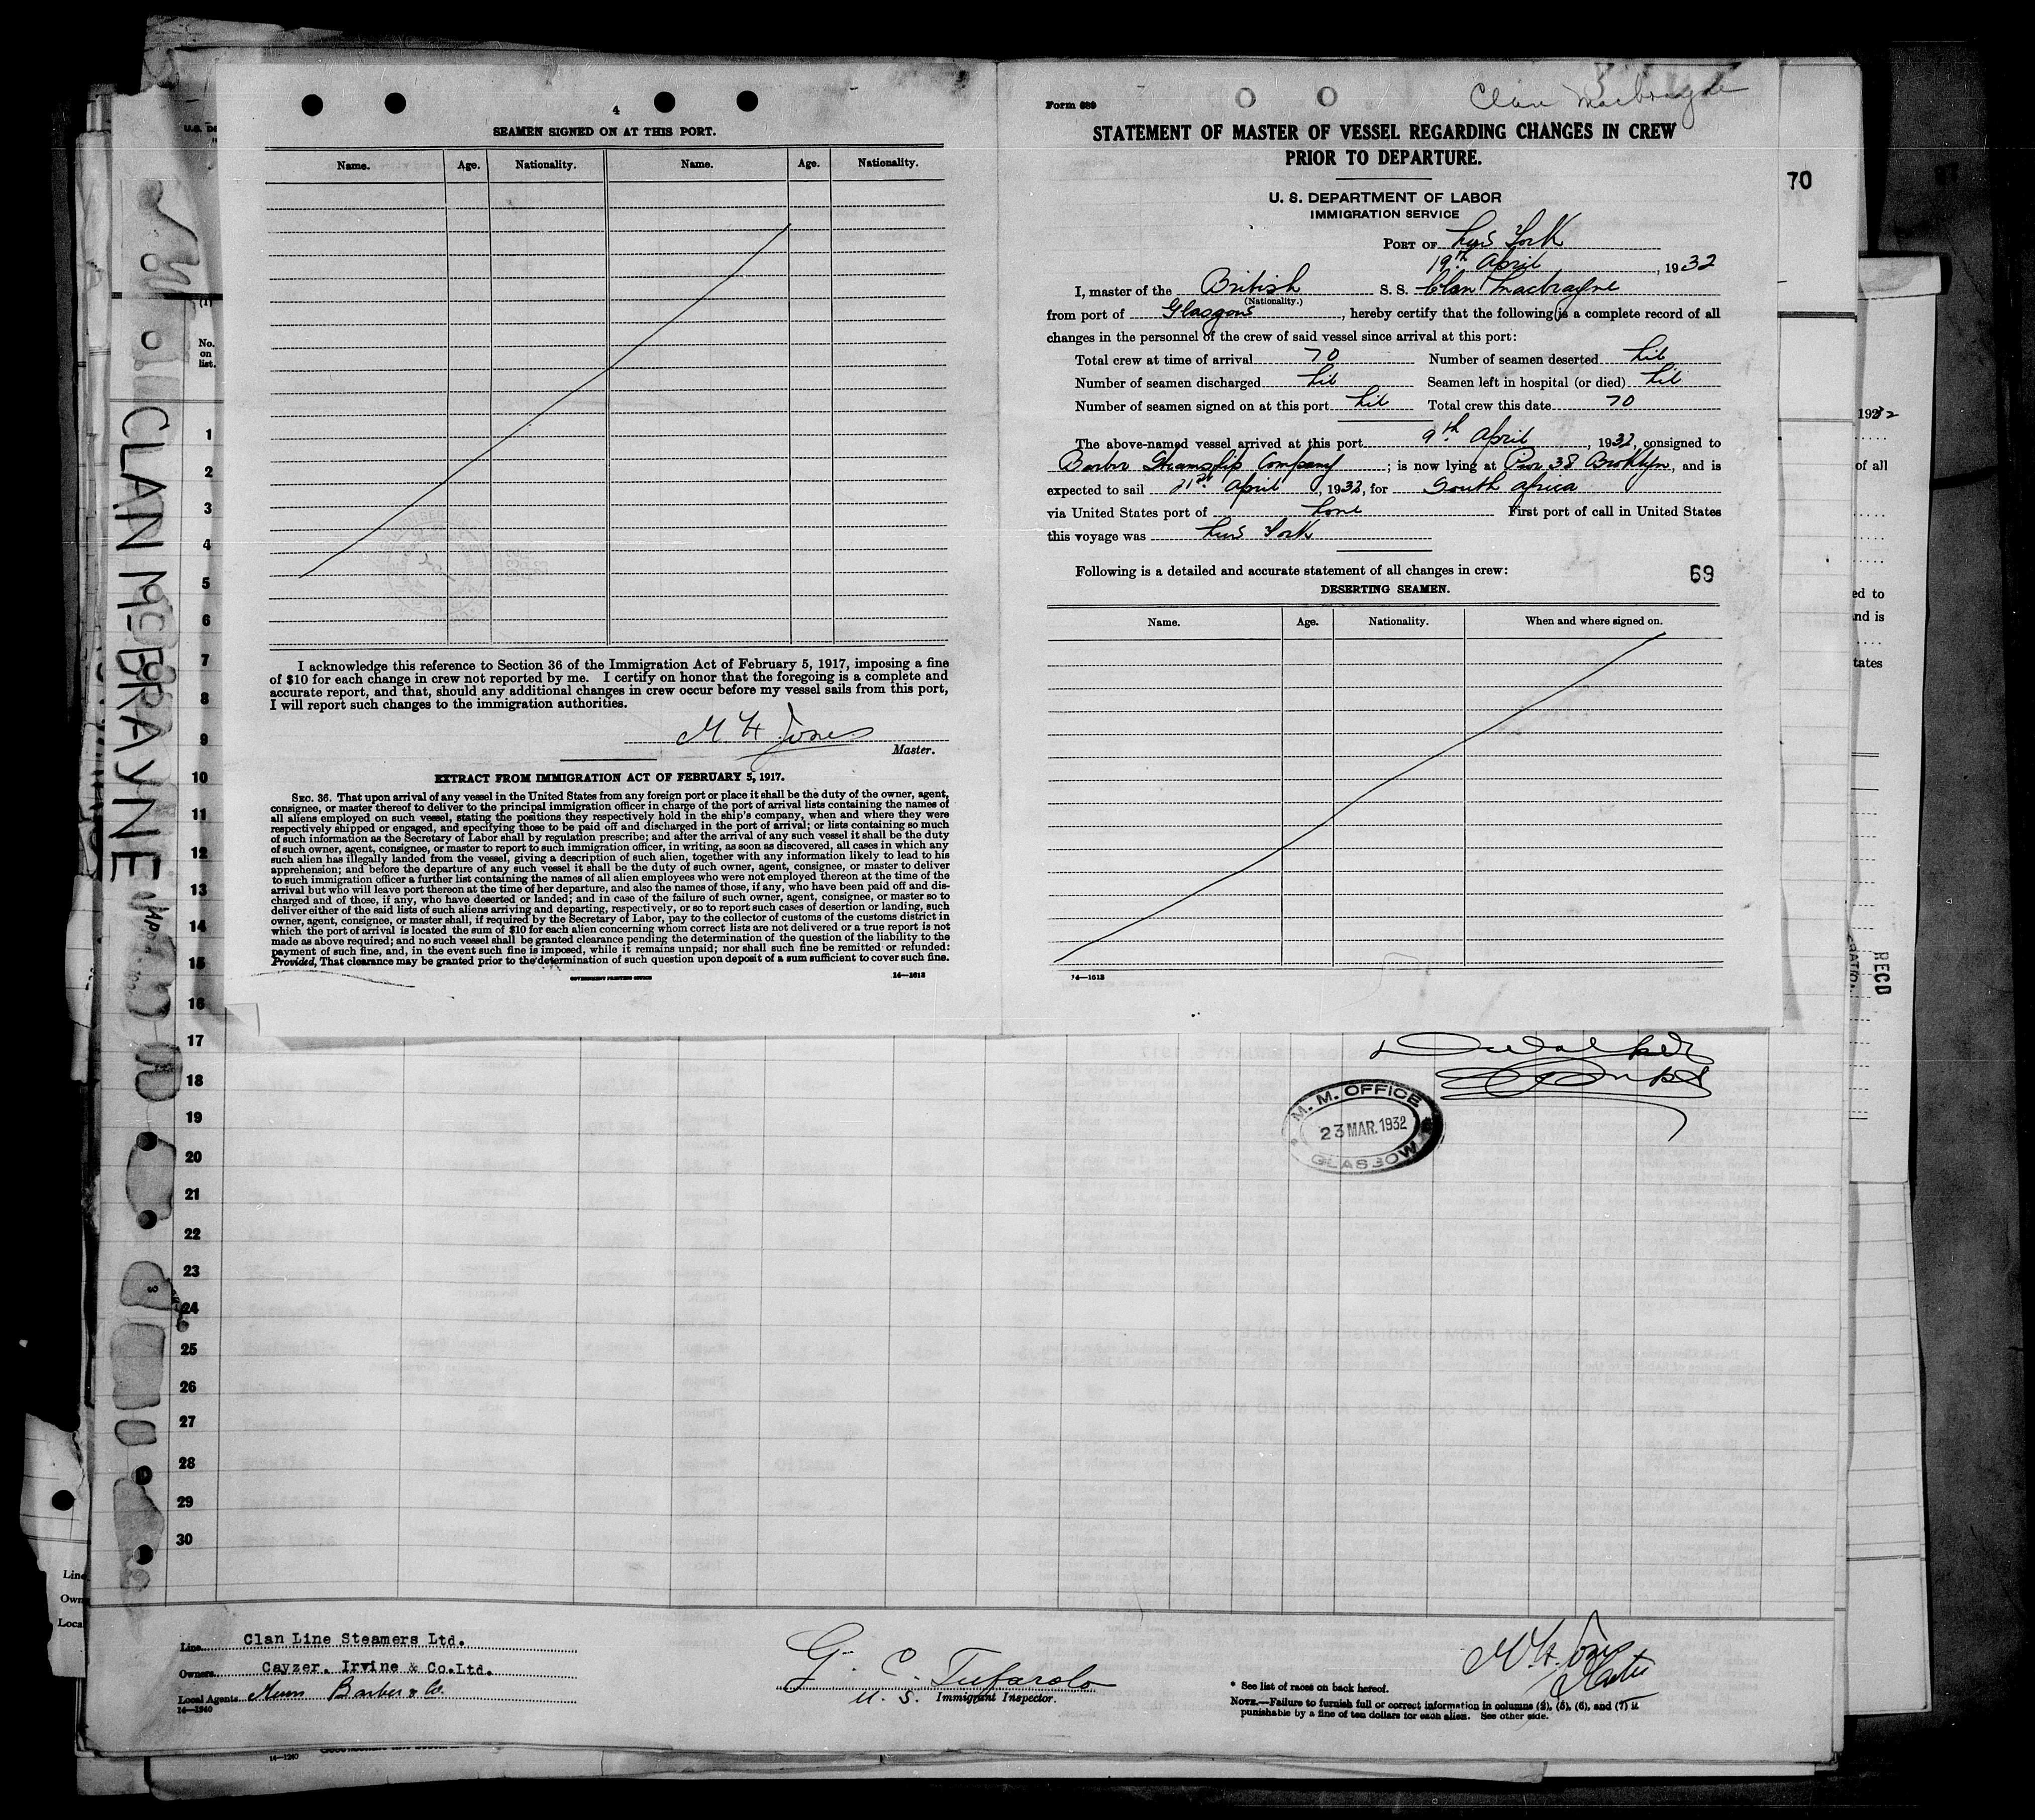 4
SEAMEN SIGNED ON AT THIS PORT.
Name. Age. Nationality. Name. Age. Nationality.
I acknowledge this reference to Section 36 of the Immigration Act of February 5, 1917, imposing a fine
of $10 for each change in crew not reported by me. I certify on honor that the foregoing is a complete and
accurate report, and that, should any additional changes in crew occur before my vessel sails from this port,
I will report such changes to the immigration authorities.
M. H. Jones
Master.
EXTRACT FROM IMMIGRATION ACT OF FEBRUARY 5, 1917.
SEC. 36. That upon arrival of any vessel in the United States from any foreign port or place it shall be the duty of the owner, agent,
consignee, or master thereof to deliver to the principal immigration officer in charge of the port of arrival lists containing the names of
all aliens employed on such vessel, stating the positions they respectively hold in the ship's company, when and where they were
respectively shipped or engaged, and specifying those to be paid off and discharged in the port of arrival; or lists containing so much
of such information as the Secretary of Labor shall by regulation prescribe; and after the arrival of any such vessel it shall be the duty
of such owner, agent, consignee, or master to report to such immigration officer, in writing, as soon as discovered, all cases in which any
such alien has illegally landed from the vessel, giving a description of such alien, together with any information likely to lead to his
apprehension; and before the departure of any such vessel it shall be the duty of such owner, agent, consignee, or master to deliver
to such immigration officer a further list containing the names of all alien employees who were not employed thereon at the time of the
arrival but who will leave port thereon at the time of her departure, and also the names of those, if any, who have been paid off and dis-
charged and of those, if any, who have deserted or landed; and in case of the failure of such owner, agent, consignee, or master so to
deliver either of the said lists of such aliens arriving and departing, respectively, or so to report such cases of desertion or landing, such
owner, agent, consignee, or master shall, if required by the Secretary of Labor, pay to the collector of customs of the customs district in
which the port of arrival is located the sum of $10 for each alien concerning whom correct lists are not delivered or a true report is not
made as above required; and no such vessel shall be granted clearance pending the determination of the question of the liability to the
payment of such fine, and, in the event such fine is imposed, while it remains unpaid; nor shall such fine be remitted or refunded:
Provided, That clearance may be granted prior to the determination of such question upon deposit of a sum sufficient to cover such fine.
GOVERNMENT PRINTING OFFICE 14—1613
Form 689
Clan Macbrayne
STATEMENT OF MASTER OF VESSEL REGARDING CHANGES IN CREW
PRIOR TO DEPARTURE.
U. S. DEPARTMENT OF LABOR
IMMIGRATION SERVICE
PORT OF New York
19th April, 1932
I, master of the British S. S. Clan Macbrayne
(Nationality.)
from port of Glasgow, hereby certify that the following is a complete record of all
changes in the personnel of the crew of said vessel since arrival at this port:
Total crew at time of arrival 70 Number of seamen deserted Nil
Number of seamen discharged Nil Seamen left in hospital (or died) Nil
Number of seamen signed on at this port Nil Total crew this date 70
The above-named vessel arrived at this port 9th April, 1932, consigned to
Barber Steamship Company; is now lying at Pier 38 Broklyn, and is
expected to sail 21st April, 1932, for South Africa
via United States port of None First port of call in United States
this voyage was New York
Following is a detailed and accurate statement of all changes in crew: 69
DESERTING SEAMEN.
Name. Age. Nationality. When and where signed on.
14—1613
70
1932
of all
ed to
nd is
tates
RECD
CLAN McBRAYNE
No.
on
list.
1
2
3
4
5
6
7
8
9
10
11
12
13
14
15
16
17
18
19
20
21
22
23
24
25
26
27
28
29
30
M. M. OFFICE
23 MAR. 1932
GLASGOW
Line Clan Line Steamers Ltd.
Owners Cayzer, Irvine & Co.Ltd.
Local Agents Barber & Co.
14—1240
G. C. Tufarolo
U. S. Immigrant Inspector.
M. H. Jones
Master
* See list of races on back hereof.
NOTE.—Failure to furnish full or correct information in columns (2), (5), (6), and (7) is
punishable by a fine of ten dollars for each alien. See other side.
Line
Own
Loca
14—1240